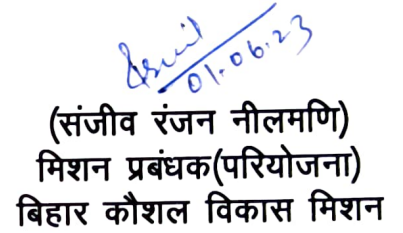 01.06.23
(संजीव रंजन नीलमणि)
मिशन प्रबंधक(परियोजना)
बिहार कौशल विकास मिशन